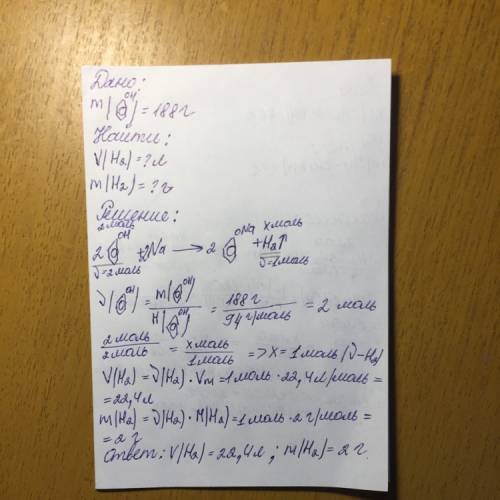 Дано:
m(OH) = 188 г
Найти:
V(H2) = ? л
m(H2) = ? г
Решение:
2 моль x моль
OH ONa
2 + 2Na → 2 + H2↑
ν=2 моль ν=1 моль
ν(OH) = m(OH) / M(OH) = 188 г / 94 г/моль = 2 моль
2 моль / 2 моль = x моль / 1 моль => x = 1 моль (ν-H2)
V(H2) = ν(H2) · Vm = 1 моль · 22,4 л/моль =
= 22,4 л
m(H2) = ν(H2) · M(H2) = 1 моль · 2 г/моль =
= 2 г
Ответ: V(H2) = 22,4 л; m(H2) = 2 г.